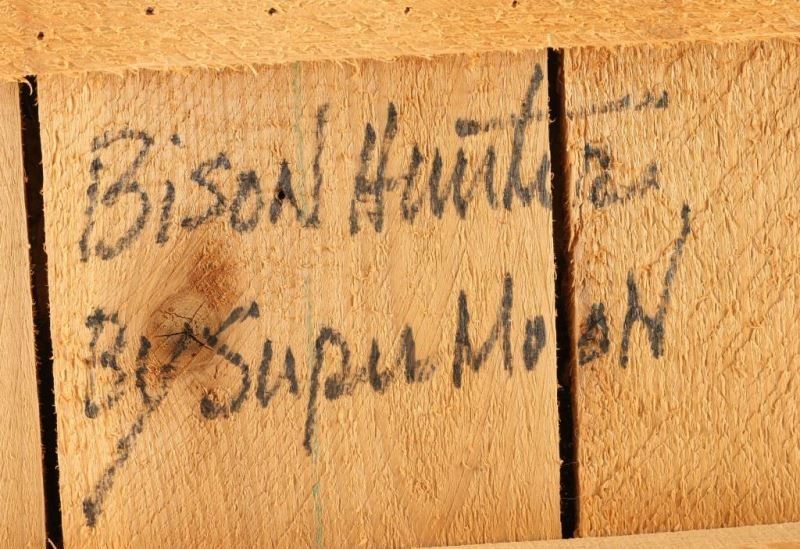 Bison Hunter
By Supu Moon